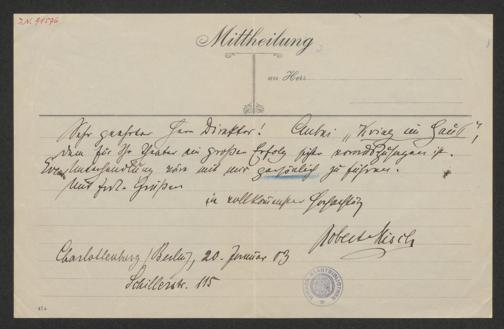 I.N. 91576
Mittheilung
an Herr
Sehr geehrter Herr Direktor! Anbei „Krieg im Haus“,
dem für Ihr Theater ein großer Erfolg sicher vorauszusagen ist.
Unterhandlung wäre mit mir persönlich zu führen.
Mit frdl. Grüßen
in vollkommener Hochachtung
Robert Misch
Charlottenburg (Berlin), 20. Januar 03
Schillerstr. 115